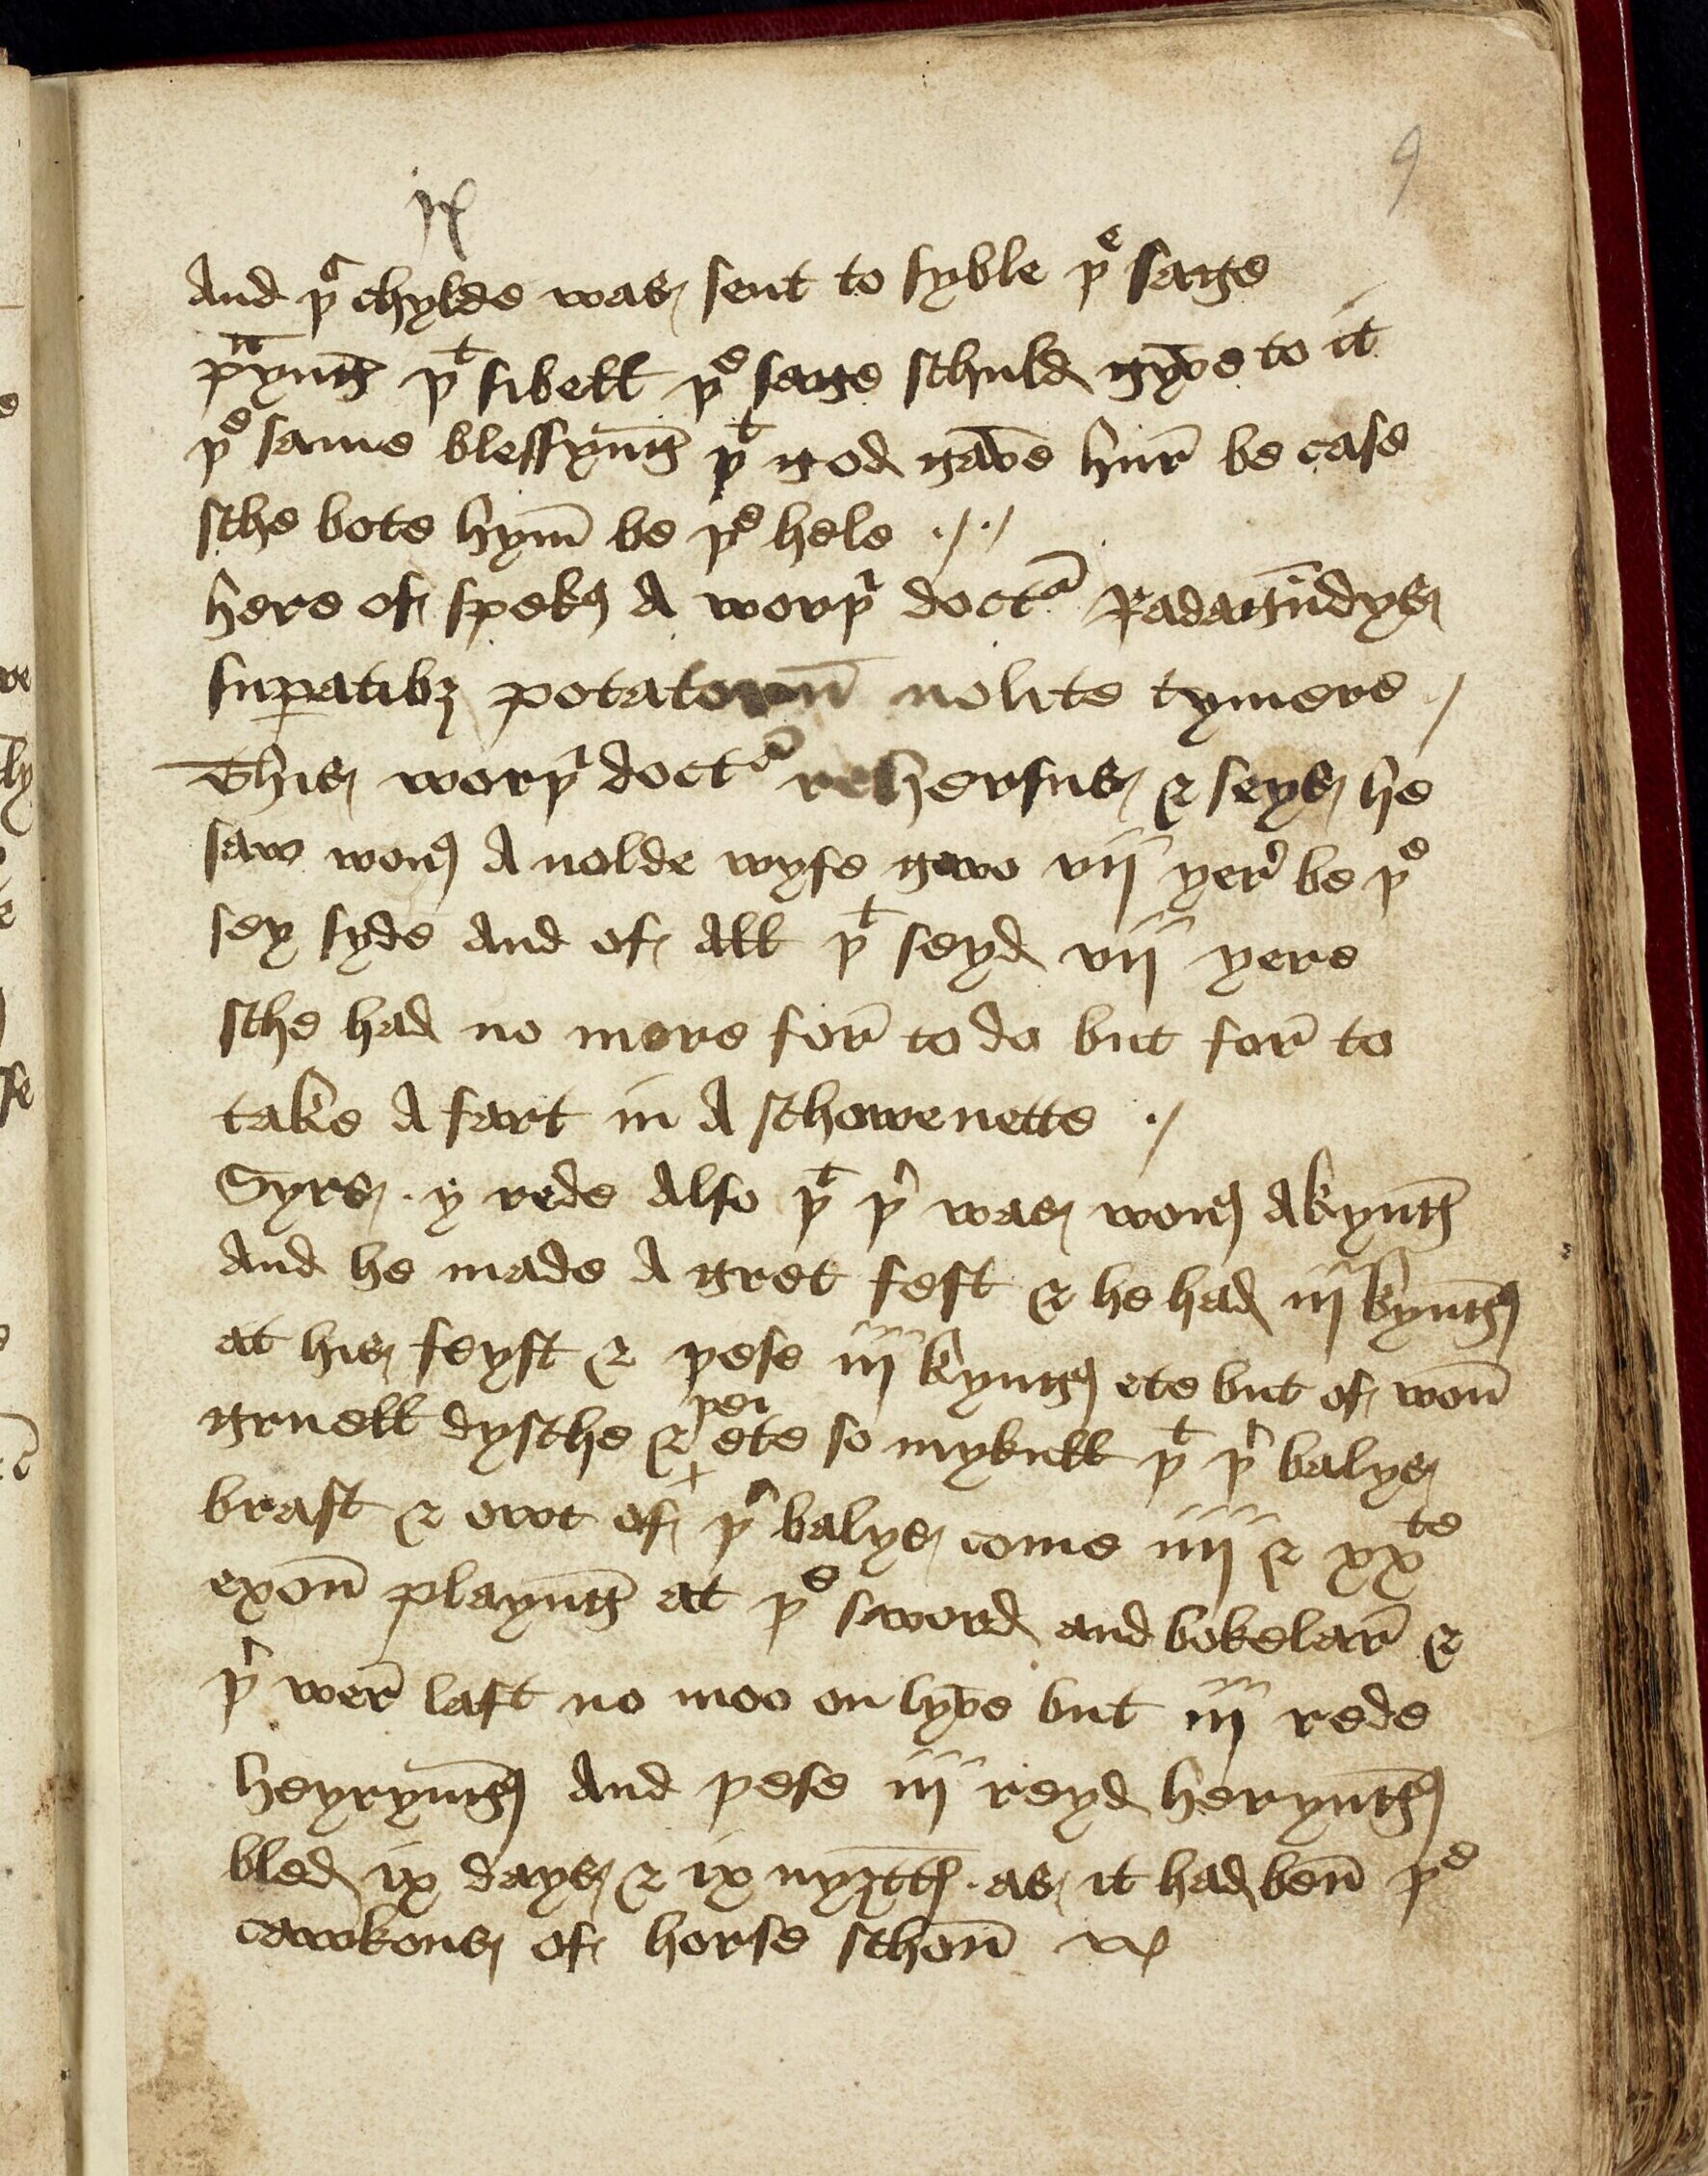 9
ix
And þͭ chylde was sent to syble þͤ sage
p̄ᵃynḡ þͭ sibell þͤ sage schuld gyve to it
þͤ same blessynḡ þͭ god gave hur̄ be case
sche bote hym̄ be þͤ hele ·/·/
here of spekꝭ A worþͥ doctͣ Radagūdys
suꝑatibꝫ potatorum̄ nolite tymere /
This worþͥ doctͣ rehersus & seys he
saw wonꝭ A nolde wyfe gwo vii yer̉ be þͤ
sey syde And of All þͭ seyd vii yere
sche had no more for̄ to do but for̄ to
take A fart in A schowenette ·/
Syrs · y rede Also þͭ þ̉ was wonꝭ A kynḡ
And he made A gret fest & he had iij kynḡꝭ
at his feyst & þese iij kyngꝭ ete but of won̄
gruell dysche & þei ete so mykull þͭ þ̉ balys
brast & owt of þ̉ balys come iiii & xxͭͤ
oxon̄ playnḡ at þͤ sword and bokelar̄ &
þ̉ wer̄ laft no moo on lyve but iij rede
heyrynḡꝭ And þese iij reyd herynḡꝭ
bled ix days & ix nyȝttꝭ · as it had ben̄ þͤ
cawkons of horse schon̄